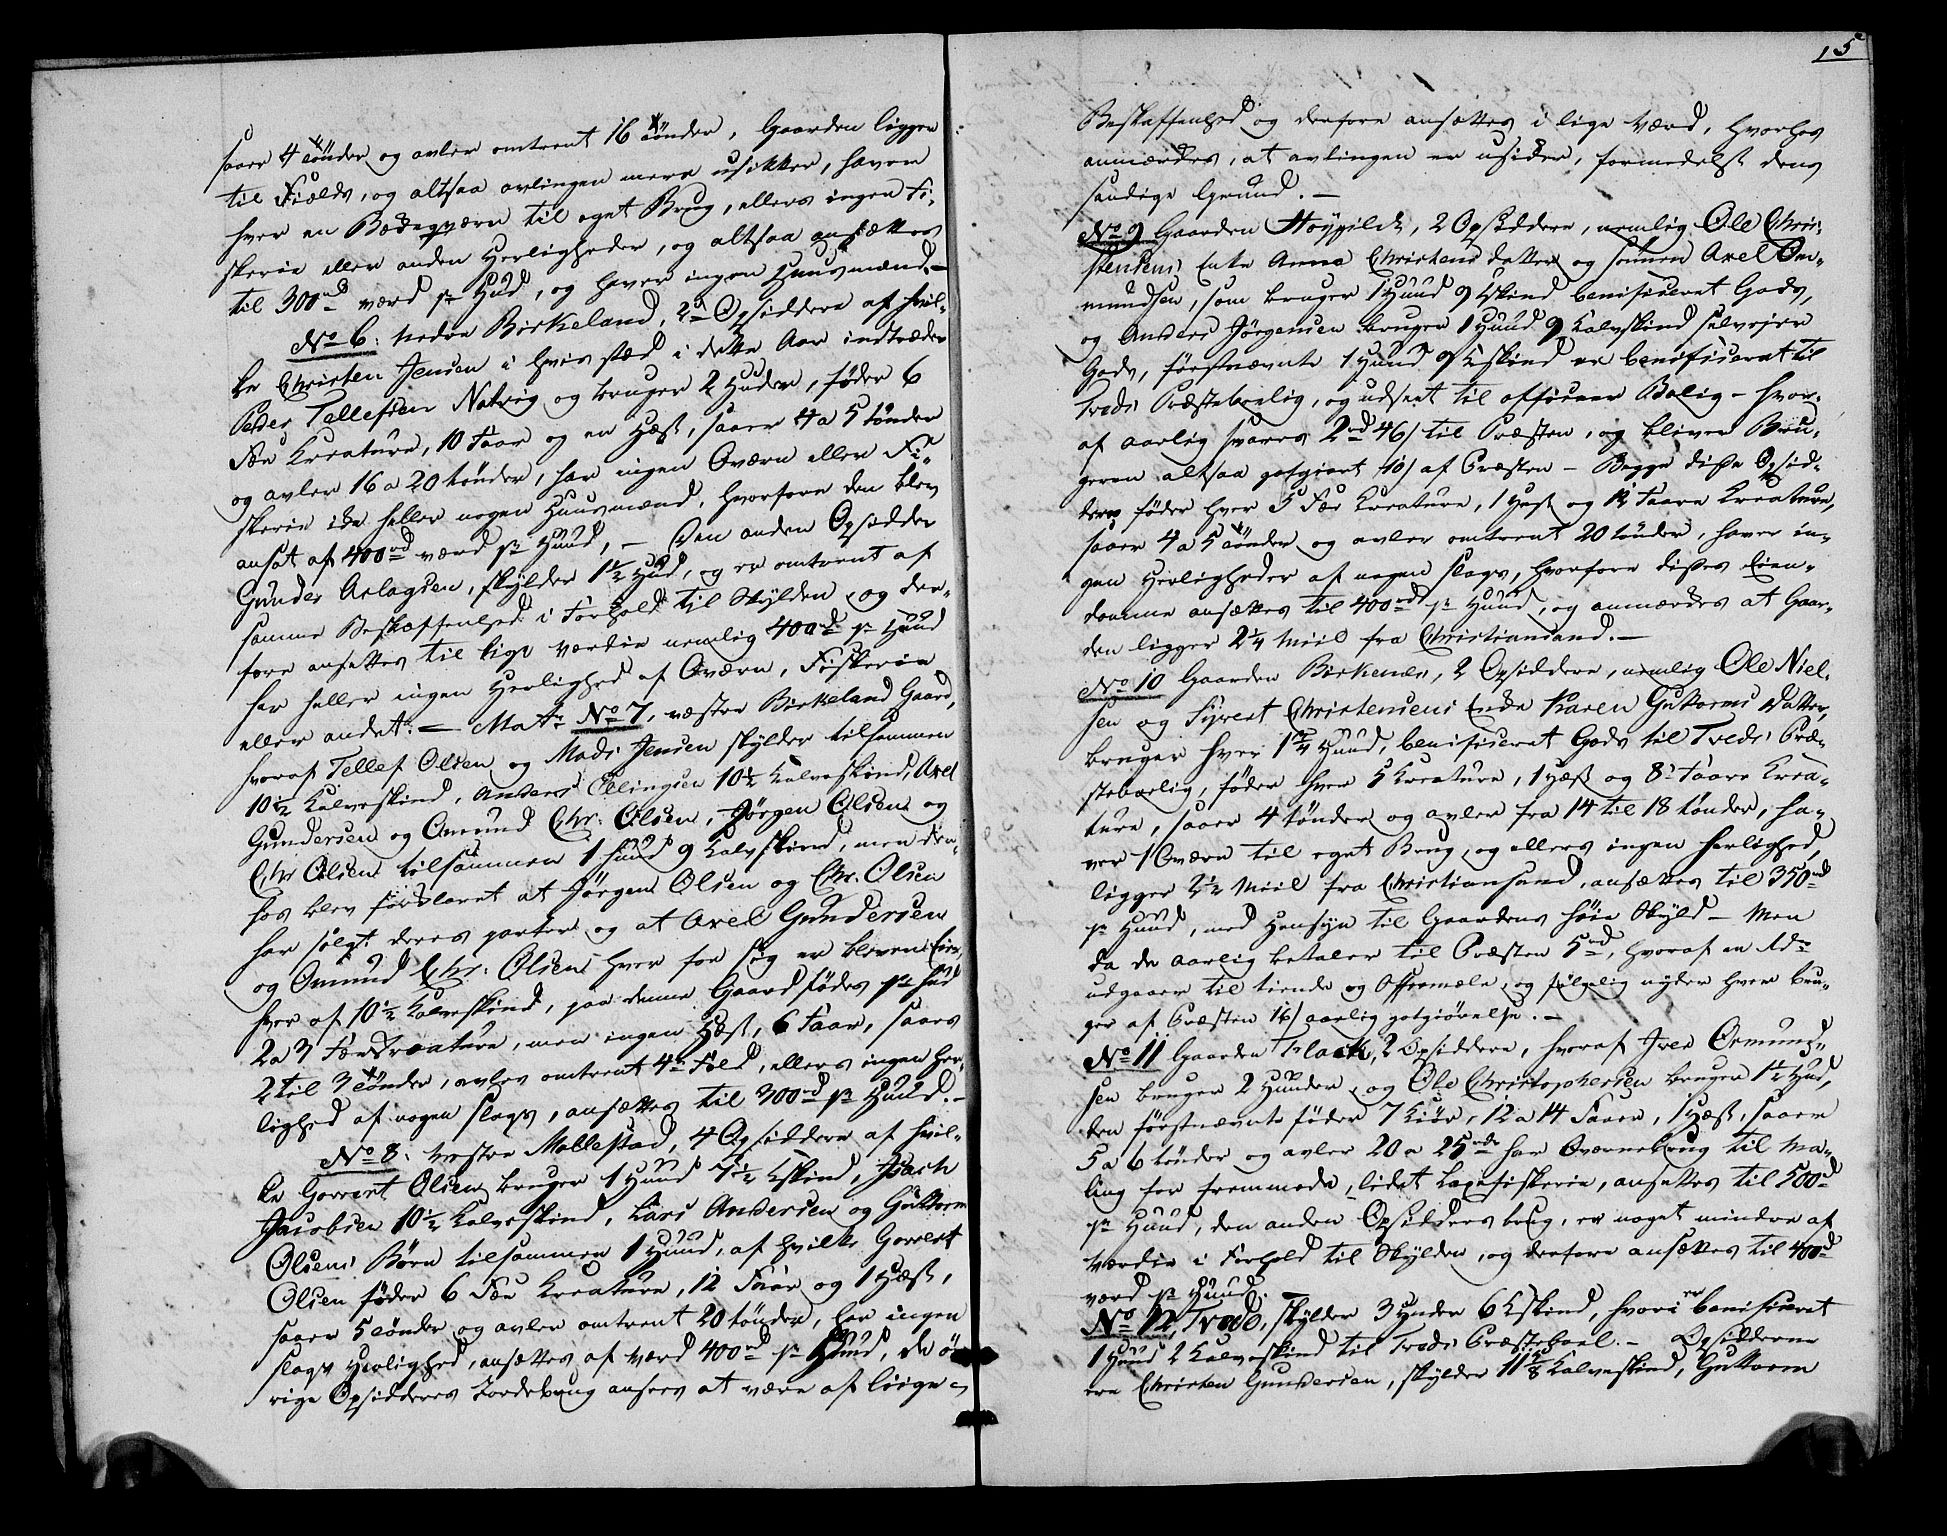 saaer 4 tønder og avler omtrent 16 tønder, Gaarden ligger
til Fields, og altsaa avlingen mere usikker, haver
hver en Bækqværn til eget Brug, ellers ingen Fi-
skerie eller anden Herligheder, og altsaa ansættes
til 300rd værd pr Hud, og haver ingen Huusmænd.—
No 6. nedre Birkeland, 2de Opsiddere af hvil-
ke Christen Jensen i hvis stæd i dette Aar indtræder
Peder Tellefsen Natvig og bruger 2 Huder, føder 6
Fæe Kreature, 10 Faar og en Hæst, saaer 4 a 5 tønder
og avler 16 a 20 tønder, har ingen Qværn eller Fi-
skerie ikke heller nogen Huusmænd, hvorfore den blev
ansat af 400rd værd pr Huud, — Den anden Opsidder
Gunder Aslagsen, skylder 1½ Hud, og er omtrent af
samme Beskaffenhed i Forhold til Skylden, og der-
fore ansættes til lige værdie nemlig 400rd pr Huud
har heller ingen Herlighed af Qværn, Fiskerie
eller andet. — Matr No 7, vestre Birkeland Gaard,
hvoraf Tellef Olsen og Mads Jensen skylder tilsammen
10½ Kalveskind, Anders Ellingsen 10½ Kalveskind, Axel
Gundersen og Omund Chr. Olsen, Jørgen Olsen og
Chr Olsen tilsammen 1 Huud 9 Kalvskind, men der-
hos blev forklaret at Jørgen Olsen og Chr. Olsen
har solgt deres parter og at Axel Gundersen
og Omund Chr. Olsen hver for sig er bleven Eier,
hver af 10½ Kalveskind, paa denne Gaard fødes pr Hud
2 a 3 Fæe Kreature, men ingen Hæst, 6 Faar, saaes
2 til 3 tønder, avles omtrent 4de Fold, ellers ingen Her-
lighed af nogen slags, ansættes til 300rd pr Huud.—
No 8. vestre Mollestad, 4 Opsiddere af hvil-
ke Gorrert Olsen bruger 1 Huud 7½ Kskind, Isach
Jacobsen 10½ Kalveskind, Lars Andersen og Guttorm
Olsens Børn tilsammen 1 Huud, af hvilke Gorrert
Olsen føder 6 Fæe Kreature, 12 Faar og 1 Hæst,
saaer 5 tønder og avler omtrent 20 tønder, har ingen
slags Herlighed, ansættes af værd 400rd pr Huud, de øv-
rige Opsidderes Jordebrug ansees at være af liige
15
Beskaffenhed og derfore ansættes i lige Værd, hvorhos
anmærkes, at avlingen er usikker, formedelst dens
sandige Grund.—
No 9 Gaarden Høypildt, 2 Opsiddere, nemlig Ole Chri-
stensens Enke Anna Christensdatter og sønnen Axel Om-
mundsen, som bruger 1 Huud 9 Kskind benificeret Gods,
og Anders Jørgensen bruger 1 Huud 9 Kalvskind selveier
Gods, førstnævnte 1 Huud 9 Kskind er benificeret til
Treds Præsteboelig, og udseet til officeer Bolig — hvor-
af aarlig svares 2rd 46s til Præsten, og bliver Bru-
geren altsaa godgiort 10s af Præsten — Begge disse Opsid-
dere føder hver 5 Fæe Kreature, 1 Hest og 12 Faare Kreature,
saaer 4 a 5 tønder og avler omtrent 20 tønder, haver in-
gen Herligheder af nogen slags, hvorfore disses Eien-
domme ansættes til 400rd pr Huud, og anmærkes at Gaar-
den ligger 2¼ Miil fra Christiansand.—
No 10 Gaarden Birkenes, 2 Opsiddere, nemlig Ole Niel-
sen og Syvert Christensens Enke Karen Guttorms Datter,
bruger hver 1¾ Huud, benificeret Gods til Treds Præ-
stebolig, føder hver 5 Kreature, 1 Hæst og 8te Faare Krea-
ture, saaer 4 tønder og avler fra 14 til 18 tønder, ha-
ver 1 Qværn til eget Brug, og ellers ingen herlighed,
ligger 2½ Miil fra Christiansand, ansættes til 350rd
pr Huud, med Hensyn til Gaardens høie Skyld — Men
da de aarlig betaler til Præsten 5rd, hvoraf en Ddr
udgaaer til tiende og Offermæle, og følgelig nyder hver bru-
ger af Præsten 16s aarlig godgiørelse.—
No 11 Gaarden Flach, 2 Opsiddere, hvoraf Iver Ormund-
sen bruger 2 Huuder, og Ole Christophersen bruger 1½ Hud,
den førstnævnte føder 7 Kiør, 12 a 14 Faaer, 1 Hæst, saaer
5 a 6 tønder og avler 20 a 25 har Qværnebrug til Ma-
ling for fremmede, lidet Laxefiskerie, ansættes til 500rd
pr Huud, den anden Opsidders brug, er noget mindre af
værdie i Forhold til Skylden, og derfore ansættes til 400rd
værd pr Huud.
No 12, Tveide, skylder 3 Huder 6 Kskind, hvori er benificeret
1 Huud 2 Kalveskind til Treds Præsteboel.— Opsidderne
ere Christen Gundersen, skylder 11⅝ Kalveskind, Guttorm